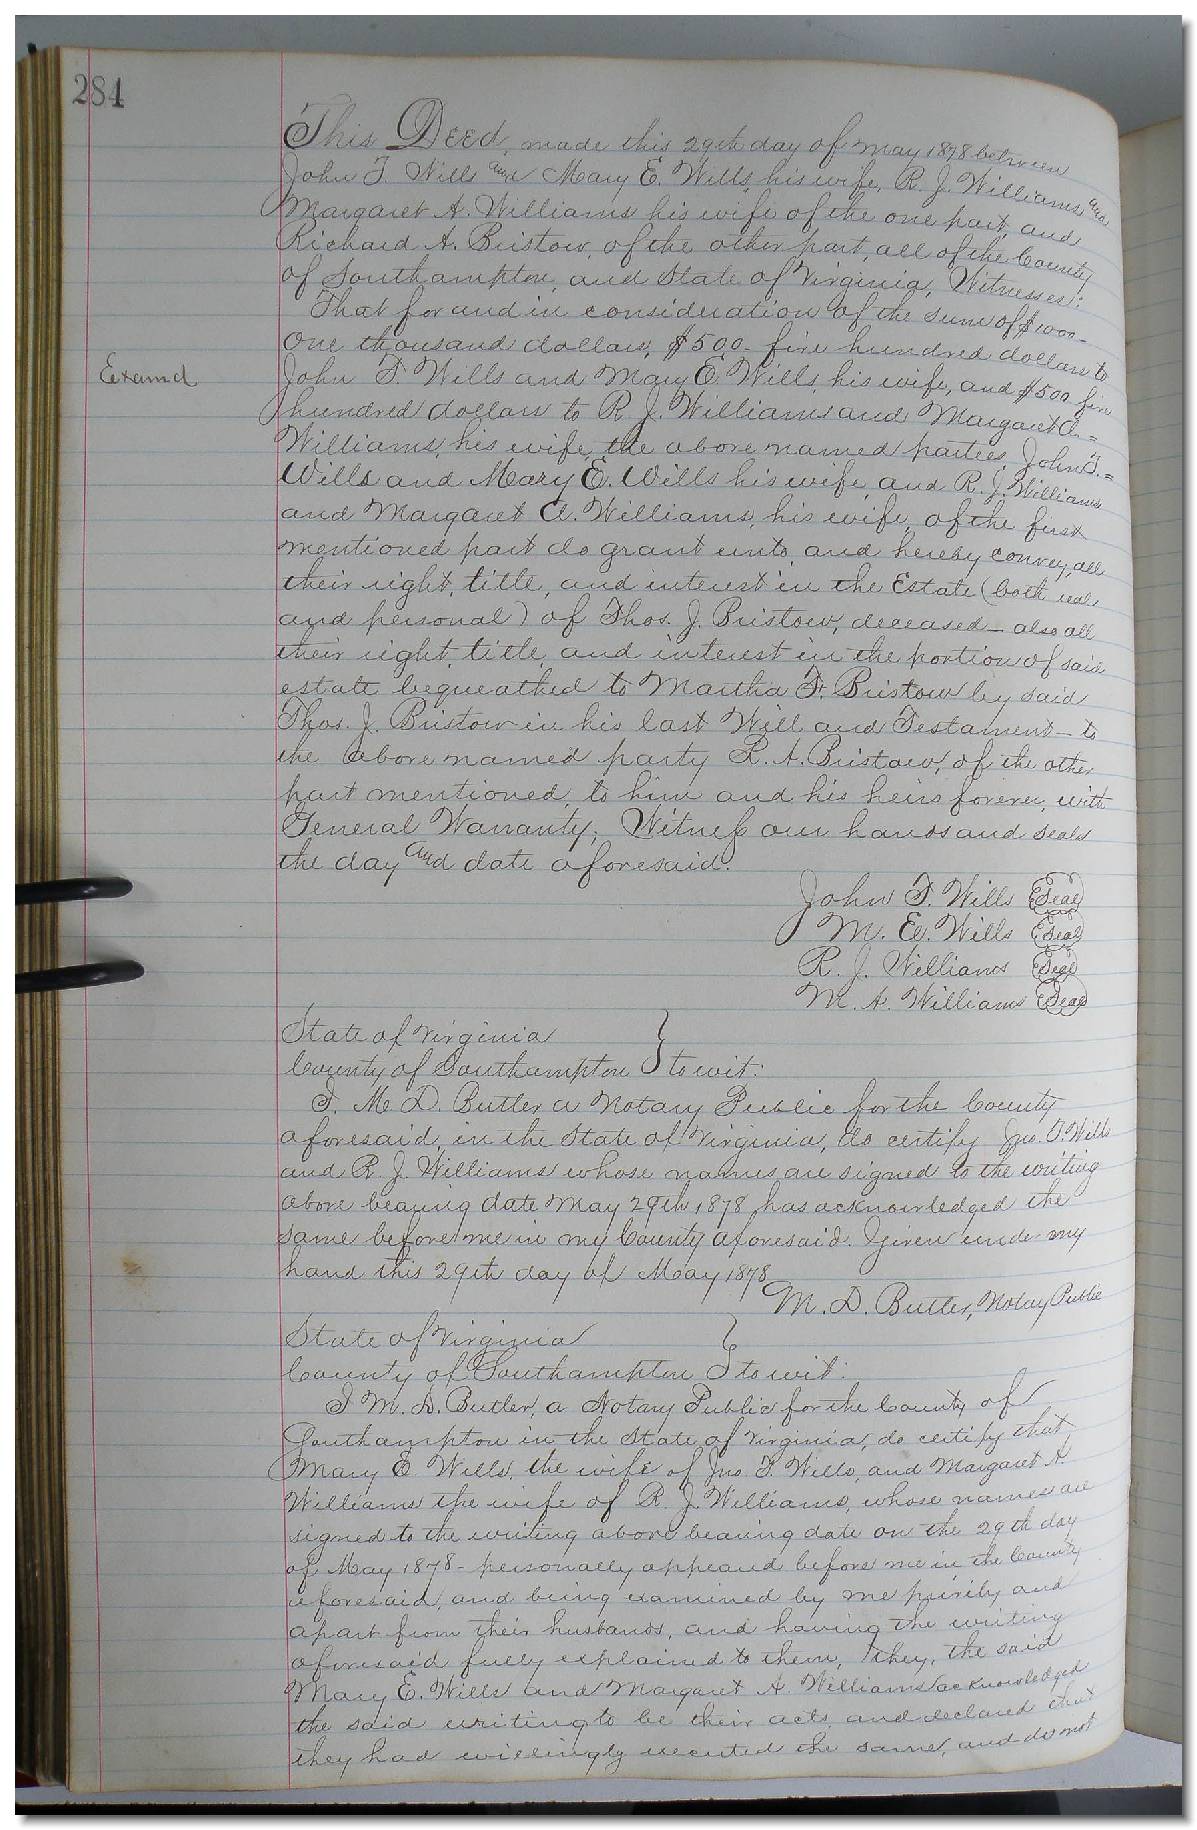 284
This Deed, made this 29th day of May 1878 between
John T. Wills and Mary E. Wills, his wife, R. J. Williams and
Margaret A. Williams his wife of the one part, and
Richard A. Bristow, of the other part, all of the County
of Southampton, and State of Virginia, Witnesses:
That for and in consideration of the sum of $1000-
One thousand dollars, $500- five hundred dollars to
Examd
John T. Wills and Mary E. Wills, his wife, and $500 five
hundred dollars to R. J. Williams and Margaret A.=
Williams, his wife, the above named parties John T.=
Wills and Mary E. Wills his wife and R. J. Williams
and Margaret A. Williams, his wife, of the first
mentioned part do grant unto, and hereby convey, all
their right, title, and interest in the Estate (both real
and personal) of Thos. J. Bristow, deceased- also all
their right, title, and interest in the portion of said
estate bequeathed to Martha F. Bristow by said
Thos. J. Bristow in his last Will and Testament- to
the above named party R. A. Bristow, of the other
part mentioned, to him and his heirs forever, with
General Warranty; Witness our hands and seals
the day and date aforesaid.
John T. Wills Seal
M. E. Wills Seal
R. J. Williams Seal
M. A. Williams Seal
State of Virginia
County of Southampton } to wit:
I. M. D. Butler a Notary Public for the County
aforesaid, in the State of Virginia, do certify Jno. T. Wills
and R. J. Williams whose names are signed to the writing
above bearing date May 29th 1878 has acknowledged the
same before me in my County aforesaid. Given under my
hand this 29th day of May 1878
M. D. Butler, Notary Public
State of Virginia
County of Southampton } to wit:
I M. D. Butler, a Notary Public for the County of
Southampton in the State of Virginia, do certify that
Mary E Wills, the wife of Jno. T. Wills, and Margaret A.
Williams the wife of R. J. Williams, whose names are
signed to the writing above bearing date on the 29th day
of May 1878- personally appeared before me in the County
aforesaid, and being examined by me privily and
apart from their husbands, and having the writing
aforesaid fully explained to them, they, the said
Mary E. Wills and Margaret A. Williams acknowledged
the said writing to be their acts, and declared that
they had willingly executed the same, and do not